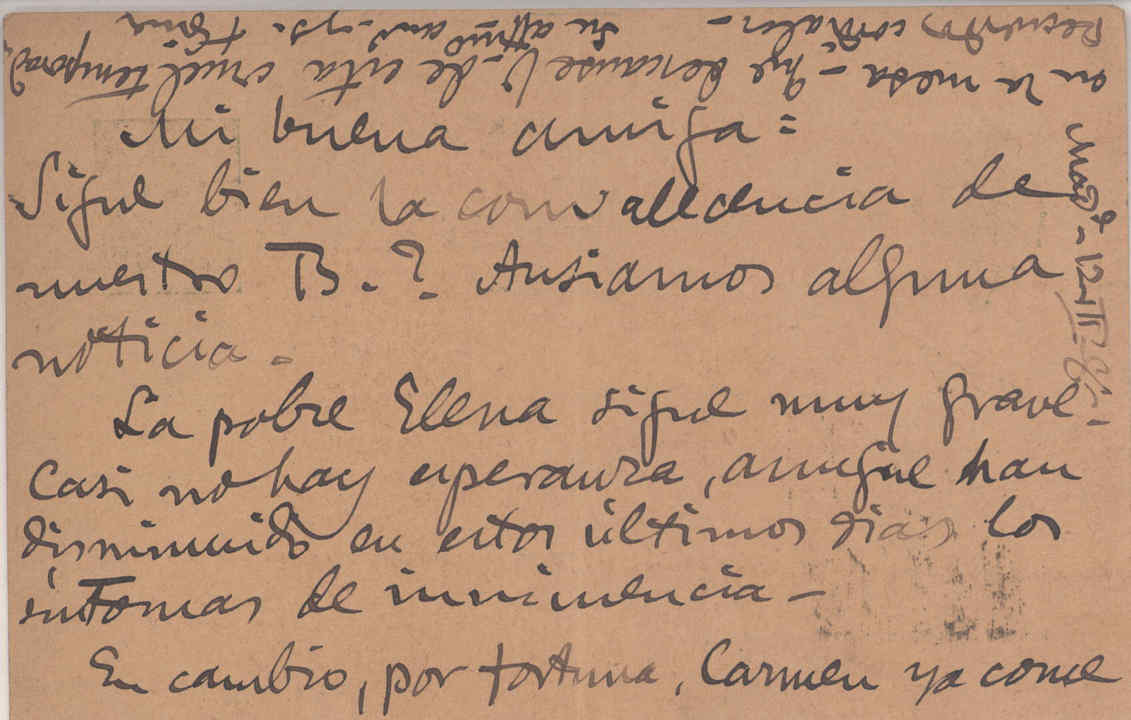 Mi buena amiga:
Sigue bien la convalecencia de
nuestro B.? Ansiamos alguna
noticia.
La pobre Elena sigue muy grave.
Casi no hay esperanza, aunque han
disminuido en estos últimos dias los
síntomas de inminencia -
En cambio, por fortuna, Carmen ya come
en la mesa - que descanse V. de esta cruel temporada
Recuerdos cordiales -
Su affmo am. 
Mad - 12-III-